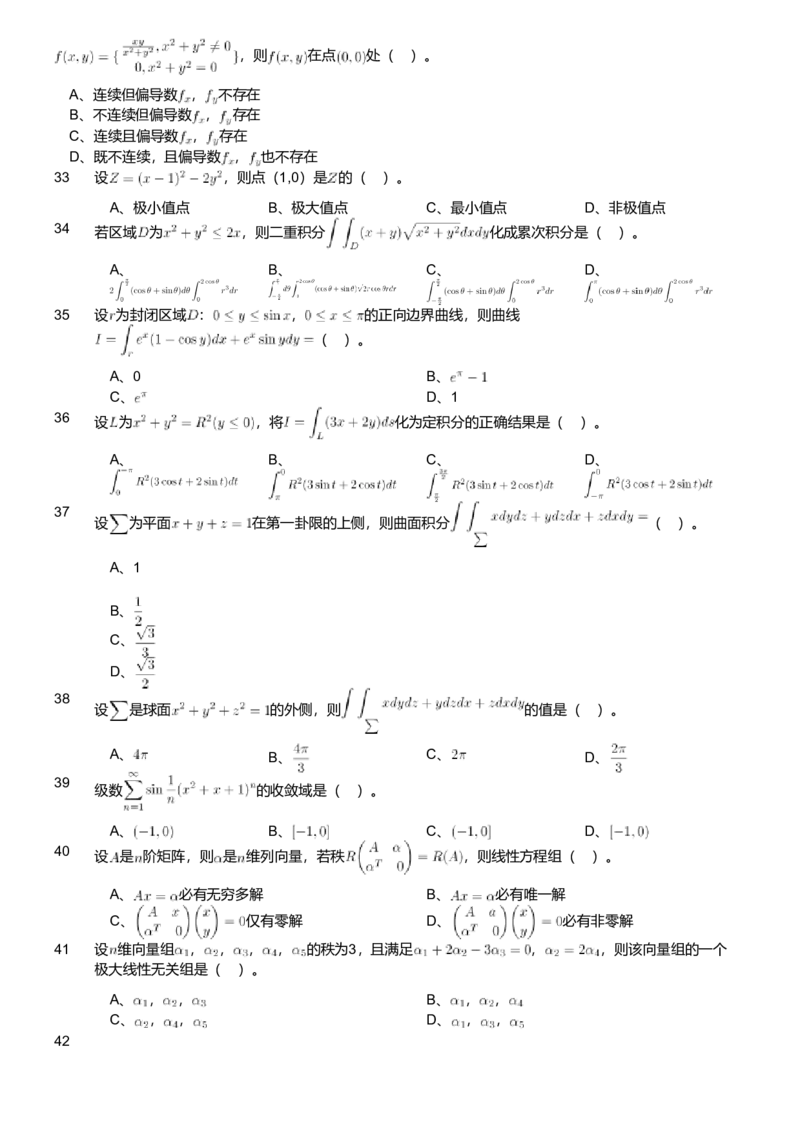 f(x,y) = { xy/(x²+y²), x² + y² ≠ 0
0, x² + y² = 0 }, 则f(x,y)在点(0,0)处（ ）。
A、连续但偏导数fₓ， f_y不存在
B、不连续但偏导数fₓ， f_y存在
C、连续且偏导数fₓ， f_y存在
D、既不连续，且偏导数fₓ， f_y也不存在
33 设Z = (x − 1)² − 2y²，则点（1,0）是Z的（ ）。
A、极小值点 B、极大值点 C、最小值点 D、非极值点
34 若区域D为x² + y² ≤ 2x，则二重积分∫∫_D (x + y)√(x² + y²)dxdy化成累次积分是（ ）。
A、 B、 C、 D、
2∫_0^{π/2}(cosθ + sinθ)dθ∫_0^{2cosθ} r³dr ∫_{−π/2}^{π/2}(cosθ + sinθ)dθ∫_0^{2cosθ} r³dr ∫_0^π(cosθ + sinθ)dθ∫_0^{2cosθ} r³dr
35 设r为封闭区域D：0 ≤ y ≤ sin x，0 ≤ x ≤ π的正向边界曲线，则曲线
I = ∫_r eˣ(1 − cos y)dx + eˣ sin ydy = （ ）。
A、0 B、e^π − 1
C、e^π D、1
36 设L为x² + y² = R²(y ≤ 0)，将I = ∫_L (3x + 2y)ds化为定积分的正确结果是（ ）。
A、 B、 C、 D、
∫_0^{−π} R²(3cos t + 2sin t)dt ∫_π^0 R²(3sin t + 2cos t)dt ∫_{π/2}^{3π/2} R²(3sin t + 2cos t)dt ∫_{−π}^0 R²(3cos t + 2sin t)dt
37 设∑为平面x + y + z = 1在第一卦限的上侧，则曲面积分∫∫_∑ xdydz + ydzdx + zdxdy = （ ）。
A、1
B、1/2
C、√3/3
D、√3/2
38 设∑是球面x² + y² + z² = 1的外侧，则∫∫_∑ xdydz + ydzdx + zdxdy的值是（ ）。
A、4π B、4π/3 C、2π D、2π/3
39 级数∑_{n=1}^∞ sin (1/n)(x² + x + 1)ⁿ的收敛域是（ ）。
A、(−1,0) B、[−1,0] C、(−1,0] D、[−1,0)
40 设A是n阶矩阵，则α是n维列向量，若秩R(A α; αᵀ 0) = R(A)，则线性方程组（ ）。
A、Ax = α必有无穷多解 B、Ax = α必有唯一解
C、(A x; αᵀ 0)(x; y) = 0仅有零解 D、(A a; αᵀ 0)(x; y) = 0必有非零解
41 设n维向量组α₁，α₂，α₃，α₄，α₅的秩为3，且满足α₁ + 2α₂ − 3α₃ = 0，α₂ = 2α₄，则该向量组的一个
极大线性无关组是（ ）。
A、α₁，α₂，α₃ B、α₁，α₂，α₄
C、α₂，α₄，α₅ D、α₁，α₃，α₅
42